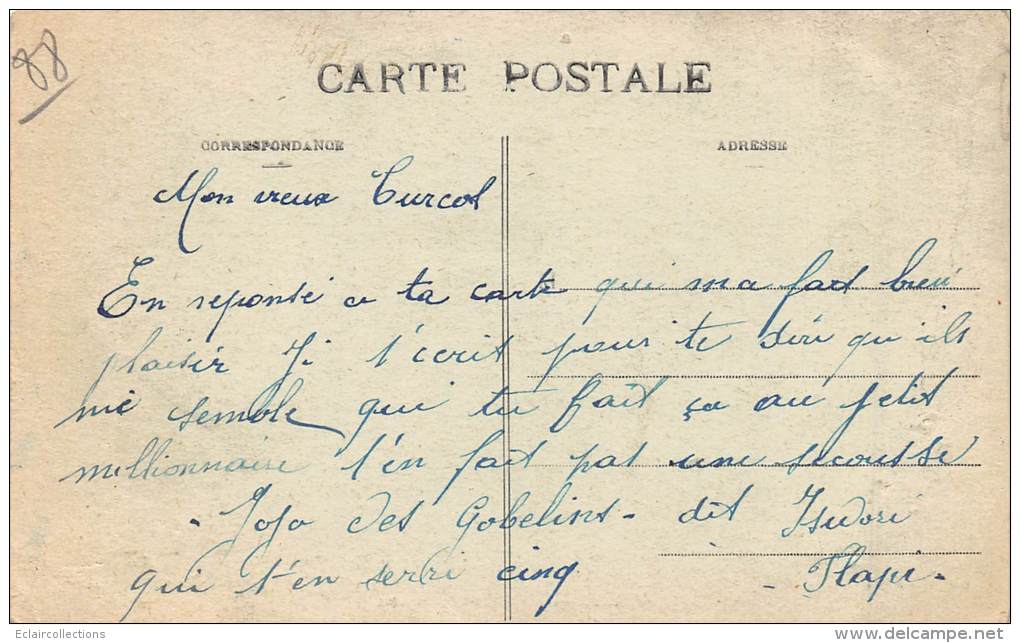 88
CARTE POSTALE
CORRESPONDANCE
ADRESSE
Mon vieux Turcot
En reponse a ta carte qui ma fait bien
plaisir Je t'ecrit pour te dire qu'ils
me semble que tu fait ça au petit
millionnaire t'en fait pas une secousse
- Jojo des Gobelins - dit Isidore
qui t'en serre cinq - Flape -
Eclaircollections
www.delcampe.net